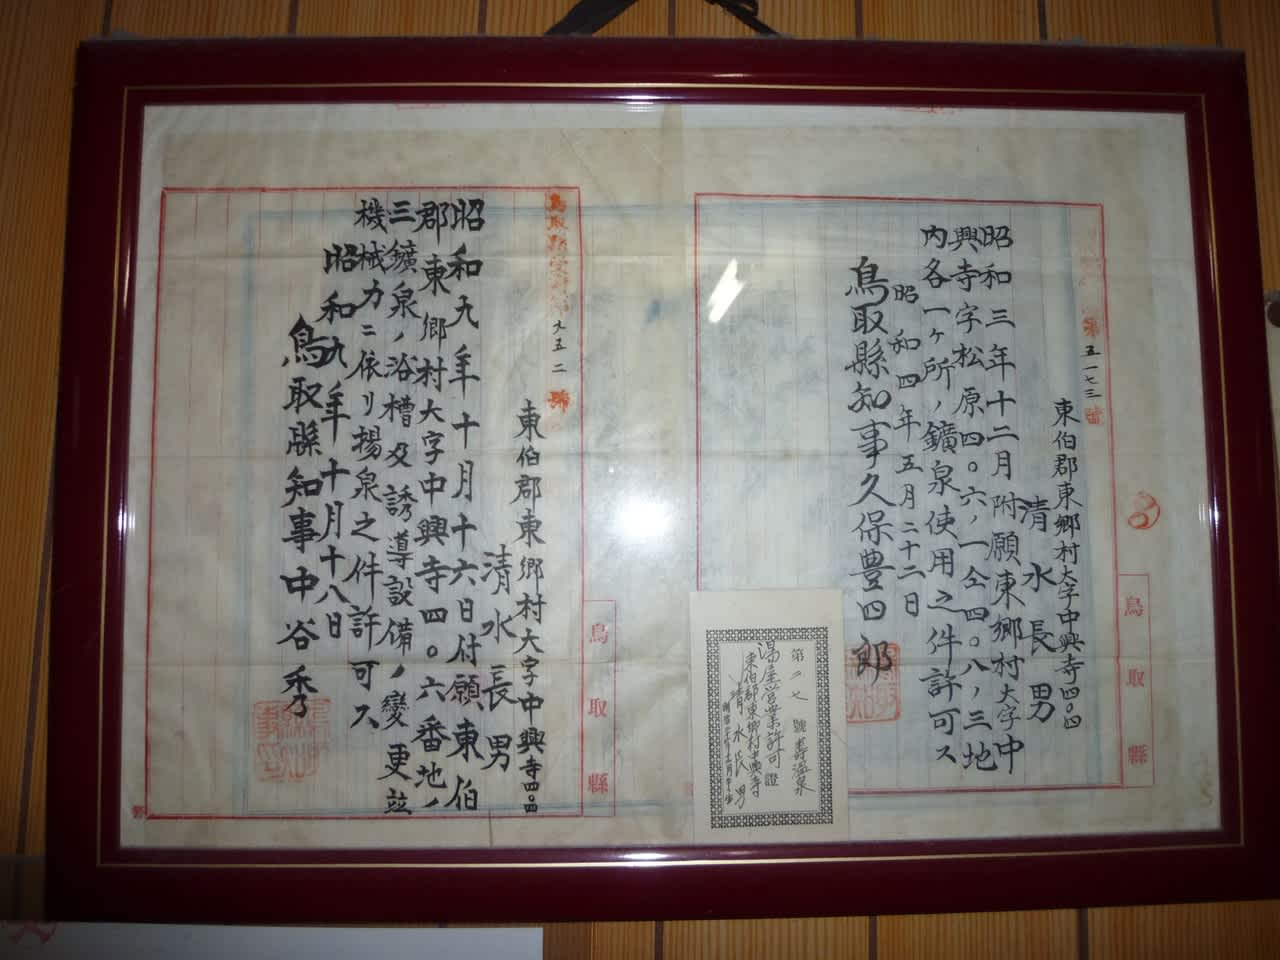 第五一七三號
東伯郡東郷村大字中興寺四〇四
清水長男
昭和三年十二月附願東郷村大字中
興寺字松原四〇六ノ一仝四〇八ノ三地
内各一ヶ所ノ鑛泉使用之件許可ス
昭和四年五月二十二日
鳥取縣知事久保豊四郎
鳥取縣
第二七號壽温泉
湯屋営業許可證
東伯郡東郷村中興寺
清水長男
九五二號
東伯郡東郷村大字中興寺四〇四
清水長男
昭和九年十月十六日付願東伯
郡東郷村大字中興寺四〇六番地ノ
三鑛泉ノ浴槽及誘導設備ノ變更並
機械力ニ依リ揚泉之件許可ス
昭和九年十月十八日
鳥取縣知事中谷秀
鳥取縣